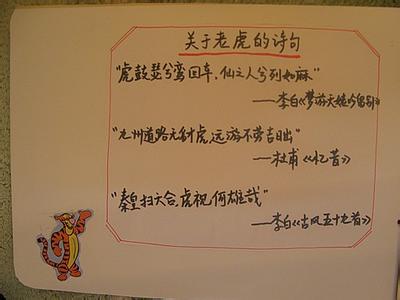 关于老虎的诗句
"虎鼓瑟兮鸾回车，仙之人兮列如麻"
——李白《梦游天姥吟留别》
"九州道路无豺虎，远游不劳吉日出"
——杜甫《忆昔》
"秦皇扫六合，虎视何雄哉"
——李白《古风五十九首》